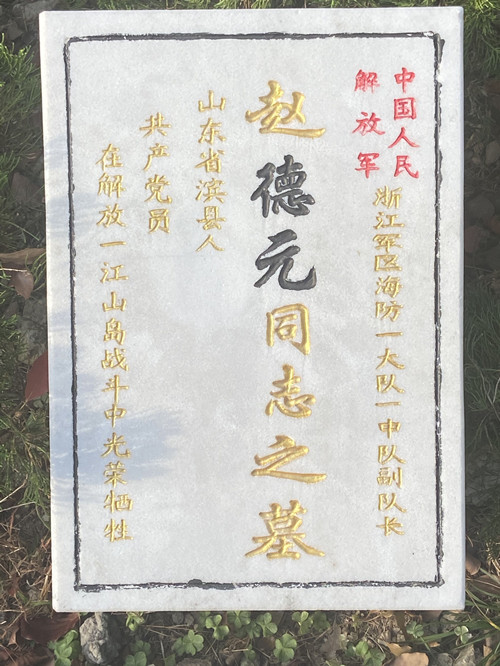 中国人民
解放军
浙江军区海防一大队一中队副队长
赵德元同志之墓
山东省滨县人
共产党员
在解放一江山岛战斗中光荣牺牲